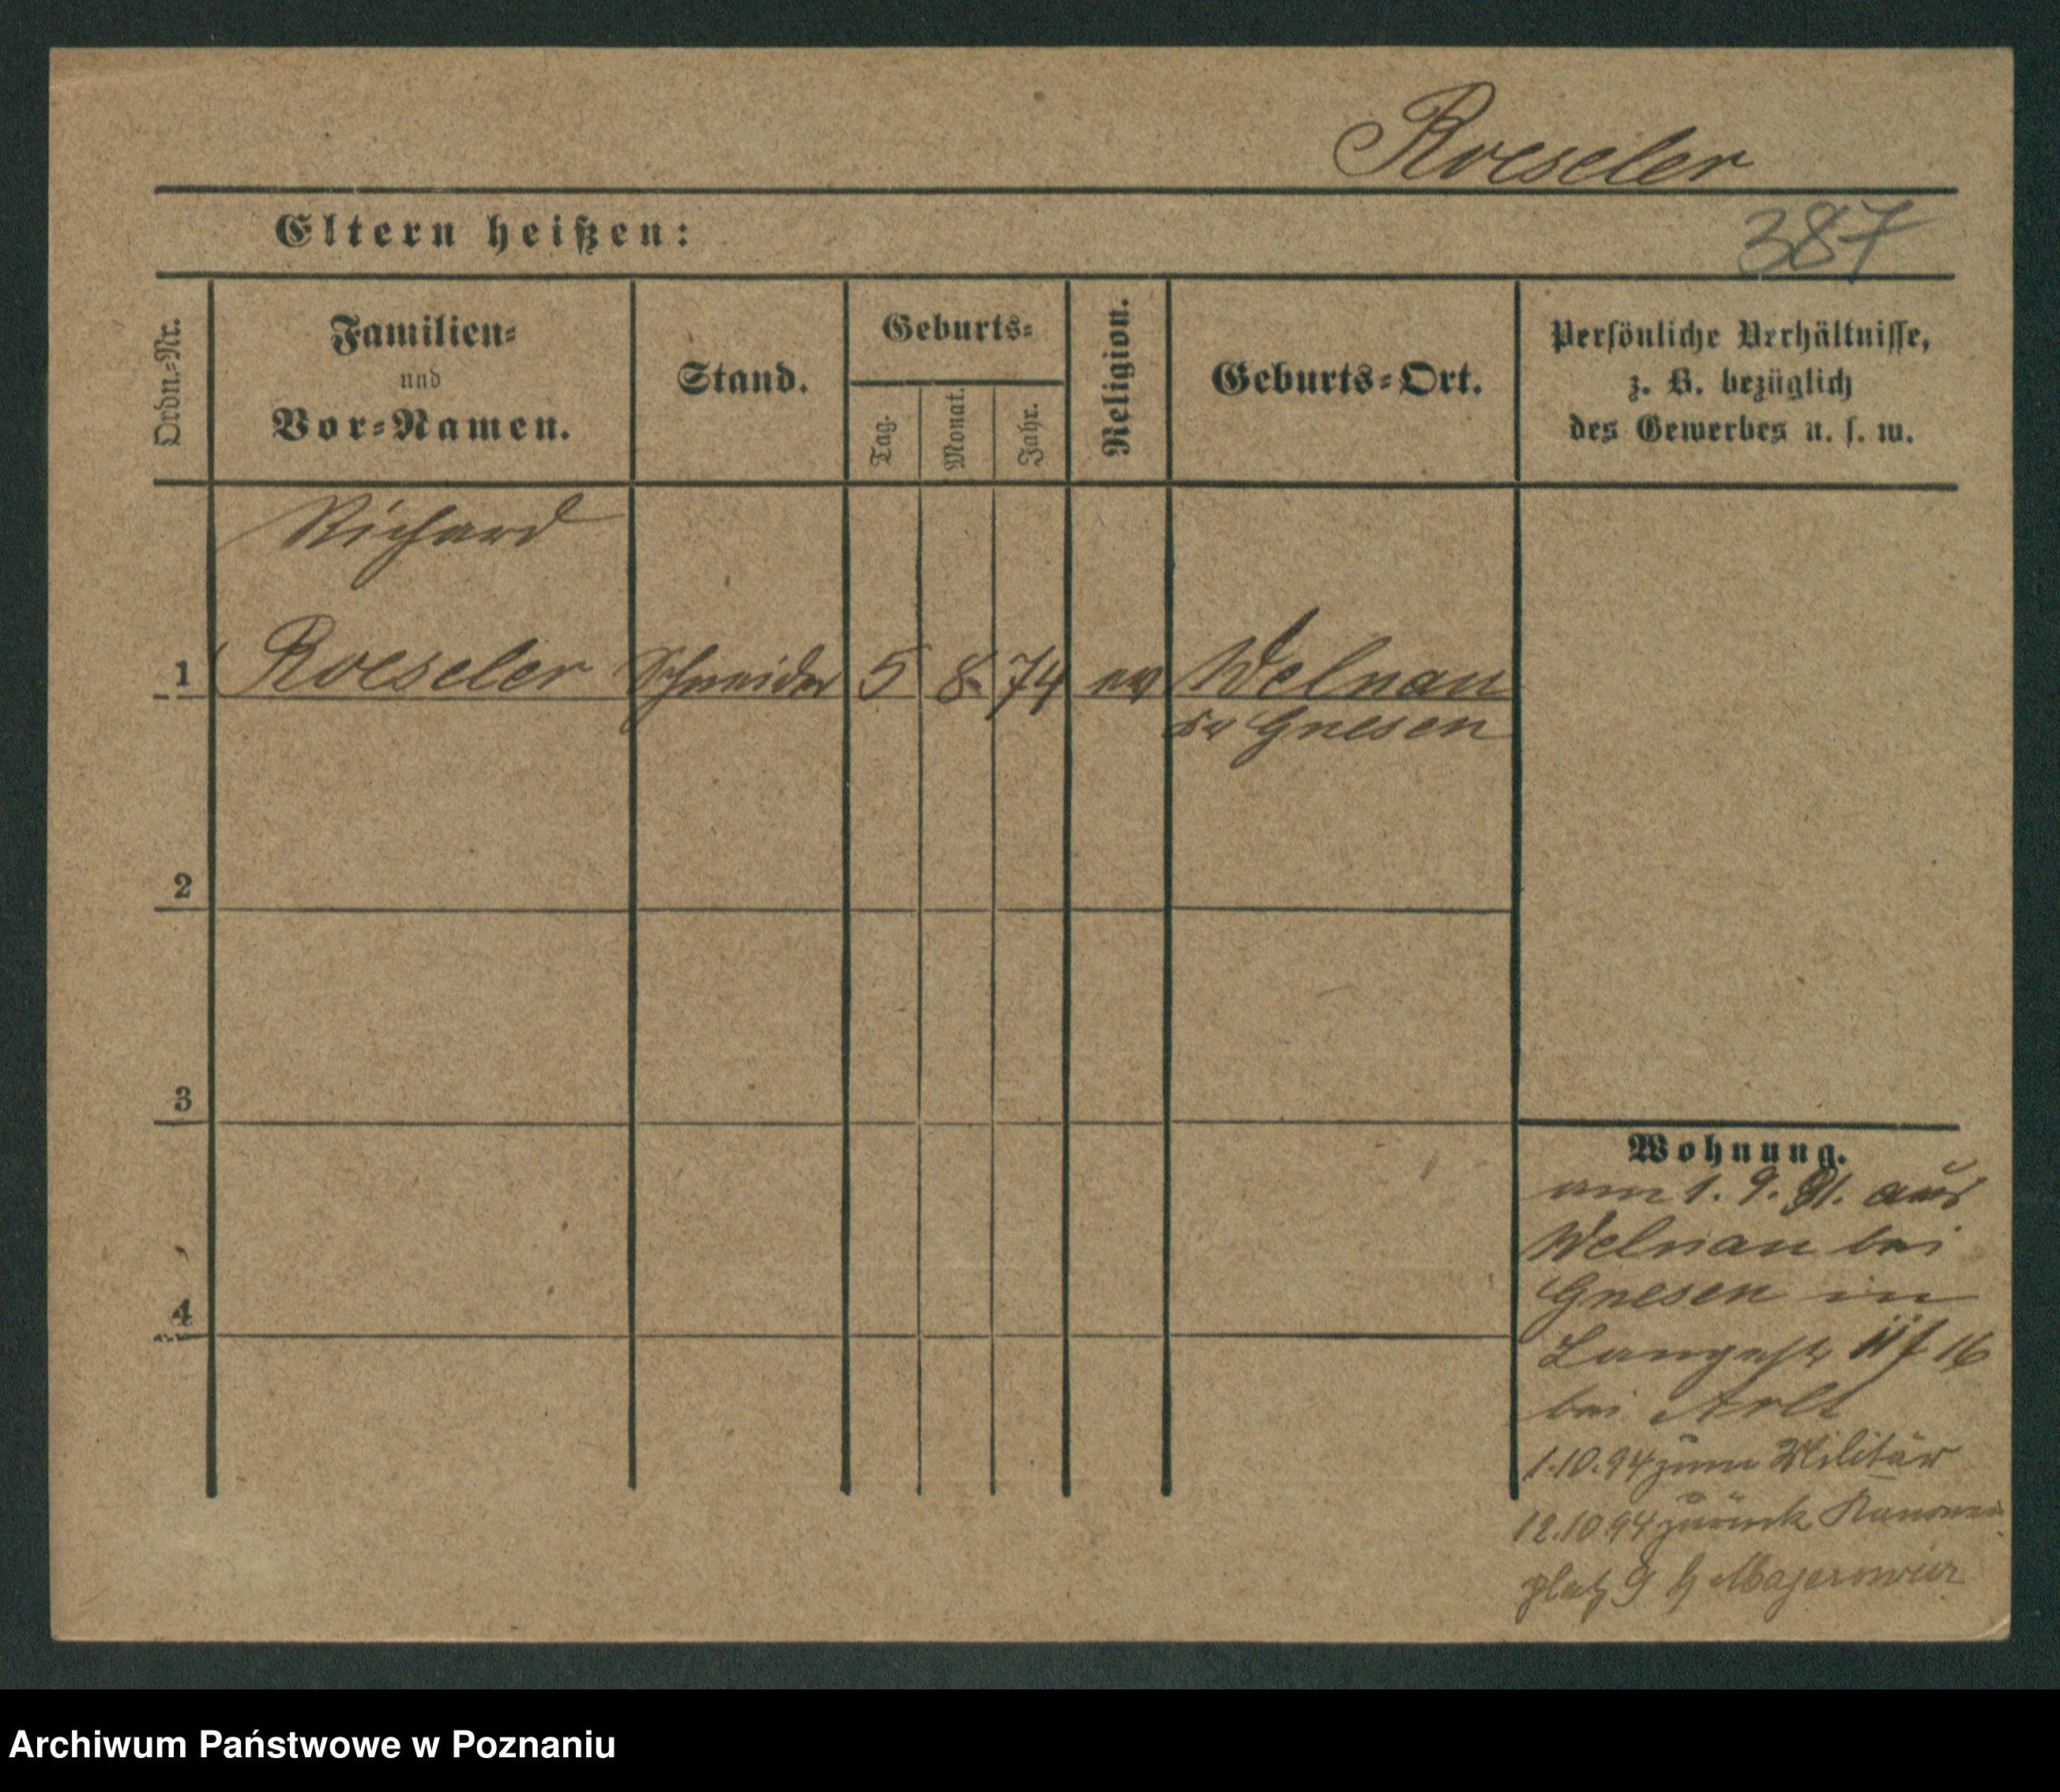 Roeseler
Eltern heißen:
387
Ordn.-Nr.
Familien-
und
Vor-Namen.
Stand.
Geburts-
Tag.
Monat.
Jahr.
Religion.
Geburts-Ort.
Persönliche Verhältnisse,
z. B. bezüglich
des Gewerbes u. s. w.
Richard
1 Roeseler Schneider 5 8 74 ev Welnau
Kr Gnesen
2
3
4
Wohnung.
am 1. 9. 91. aus
Welnau bei
Gnesen in
Langestr 16
bei Arlt
1.10.94 zum Militär
12.10 94 zurück Kanonen
platz 9 b Majerowicz
Archiwum Państwowe w Poznaniu